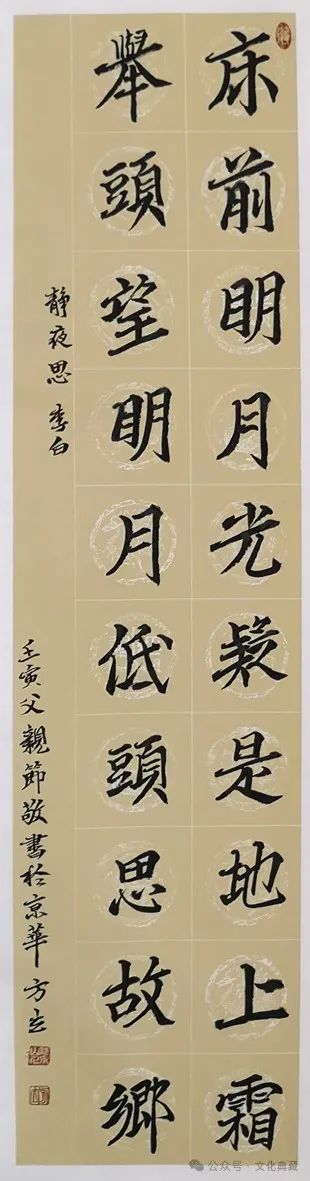 床前明月光疑是地上霜
舉頭望明月低頭思故鄉
靜夜思 李白
壬寅父親節敬書於京華 方立
公众号·文化典藏